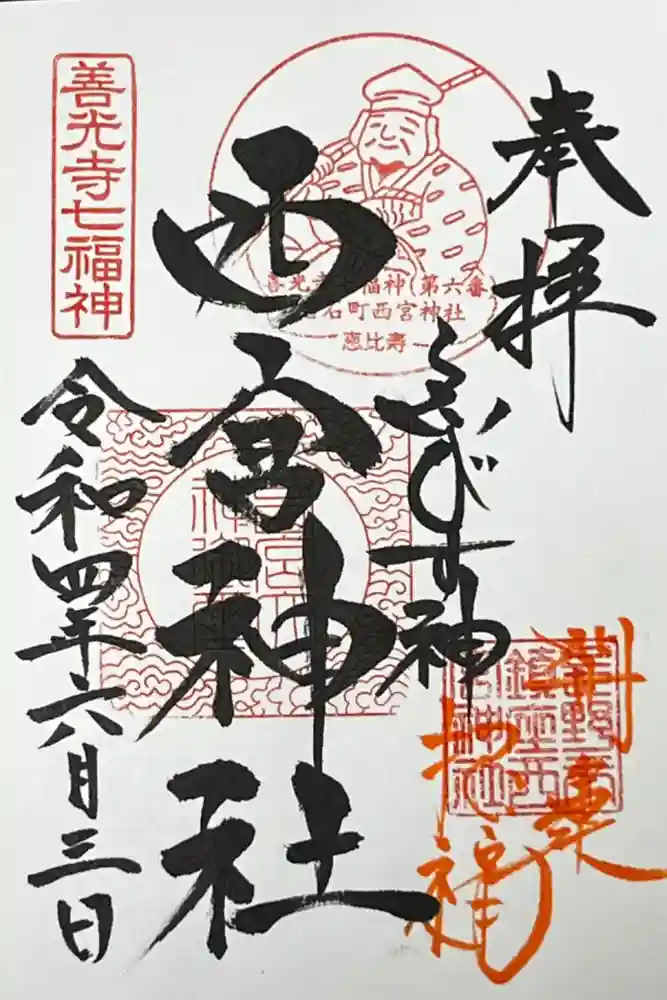 奉拝
ゑびす神
西宮神社
令和四年六月三日
善光寺七福神
善光寺七福神(第六番)
岩石町西宮神社
恵比寿
商売
招福